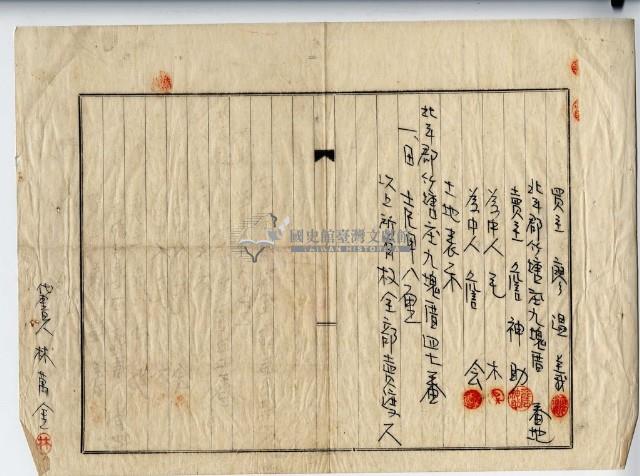 買主 廖温義
北斗郡竹塘庄九塊厝 番地
賣主 詹神助
為中人 毛木
為中人 詹会
土地表示
北斗郡竹塘庄九塊厝四七番
一、田 八厘
以上所有权全部賣渡人
代書人 林萬金
國史館臺灣文獻館
TAIWAN HISTORICA